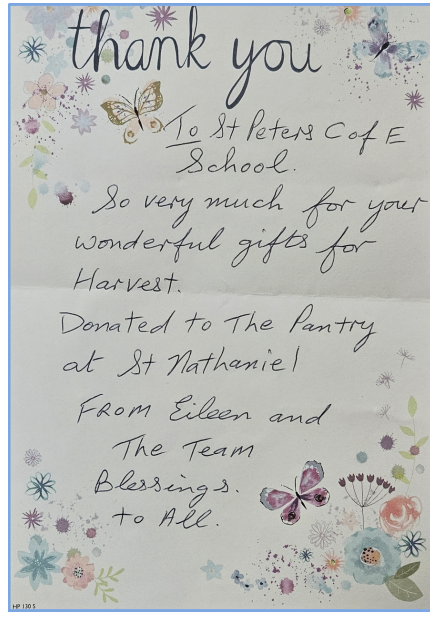 thank you
To St Peters C of E
School.
So very much for your
wonderful gifts for
Harvest.
Donated to The Pantry
at St Nathaniel
From Eileen and
The Team
Blessings.
to All.
HP 130 S